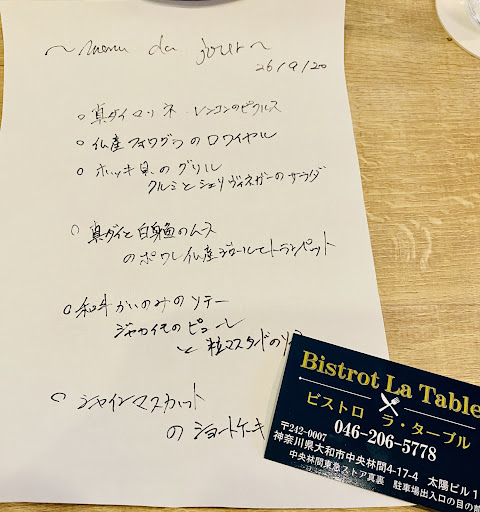 ~ Menu du jour ~
26/9/20
○ 真ダイマリネ レンコンのピクルス
○ 仏産フォワグラのロワイヤル
○ ホッキ貝のグリル
クルミとシェリヴィネガーのサラダ
○ 真ダイと白身魚のムース
のポワレ 仏産ジロールとトランペット
○ 和牛かいのみのソテー
ジャガイモのピューレ
と 粒マスタードのソ
○ シャインマスカット
の ショートケーキ
Bistrot La Table
ビストロ ラ・ターブル
046-206-5778
〒242-0007
神奈川県大和市中央林間4-17-4 太陽ビル1
中央林間東急ストア真裏 駐車場出入口の目の前